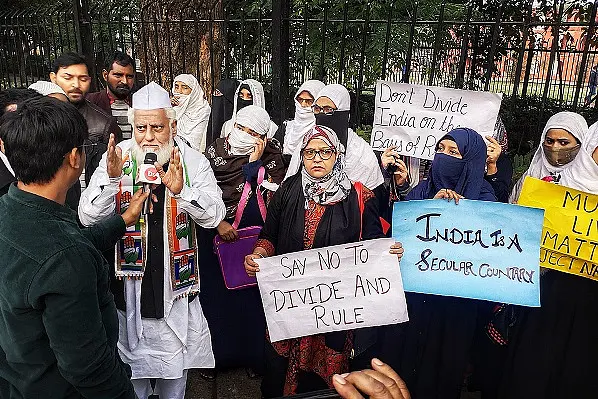 Don't Divide
India on the
Bays of R
SAY NO TO
DIVIDE AND
RULE
INDIA IS A
SECULAR COUNTARY
MU
LIV
MATT
JECT N